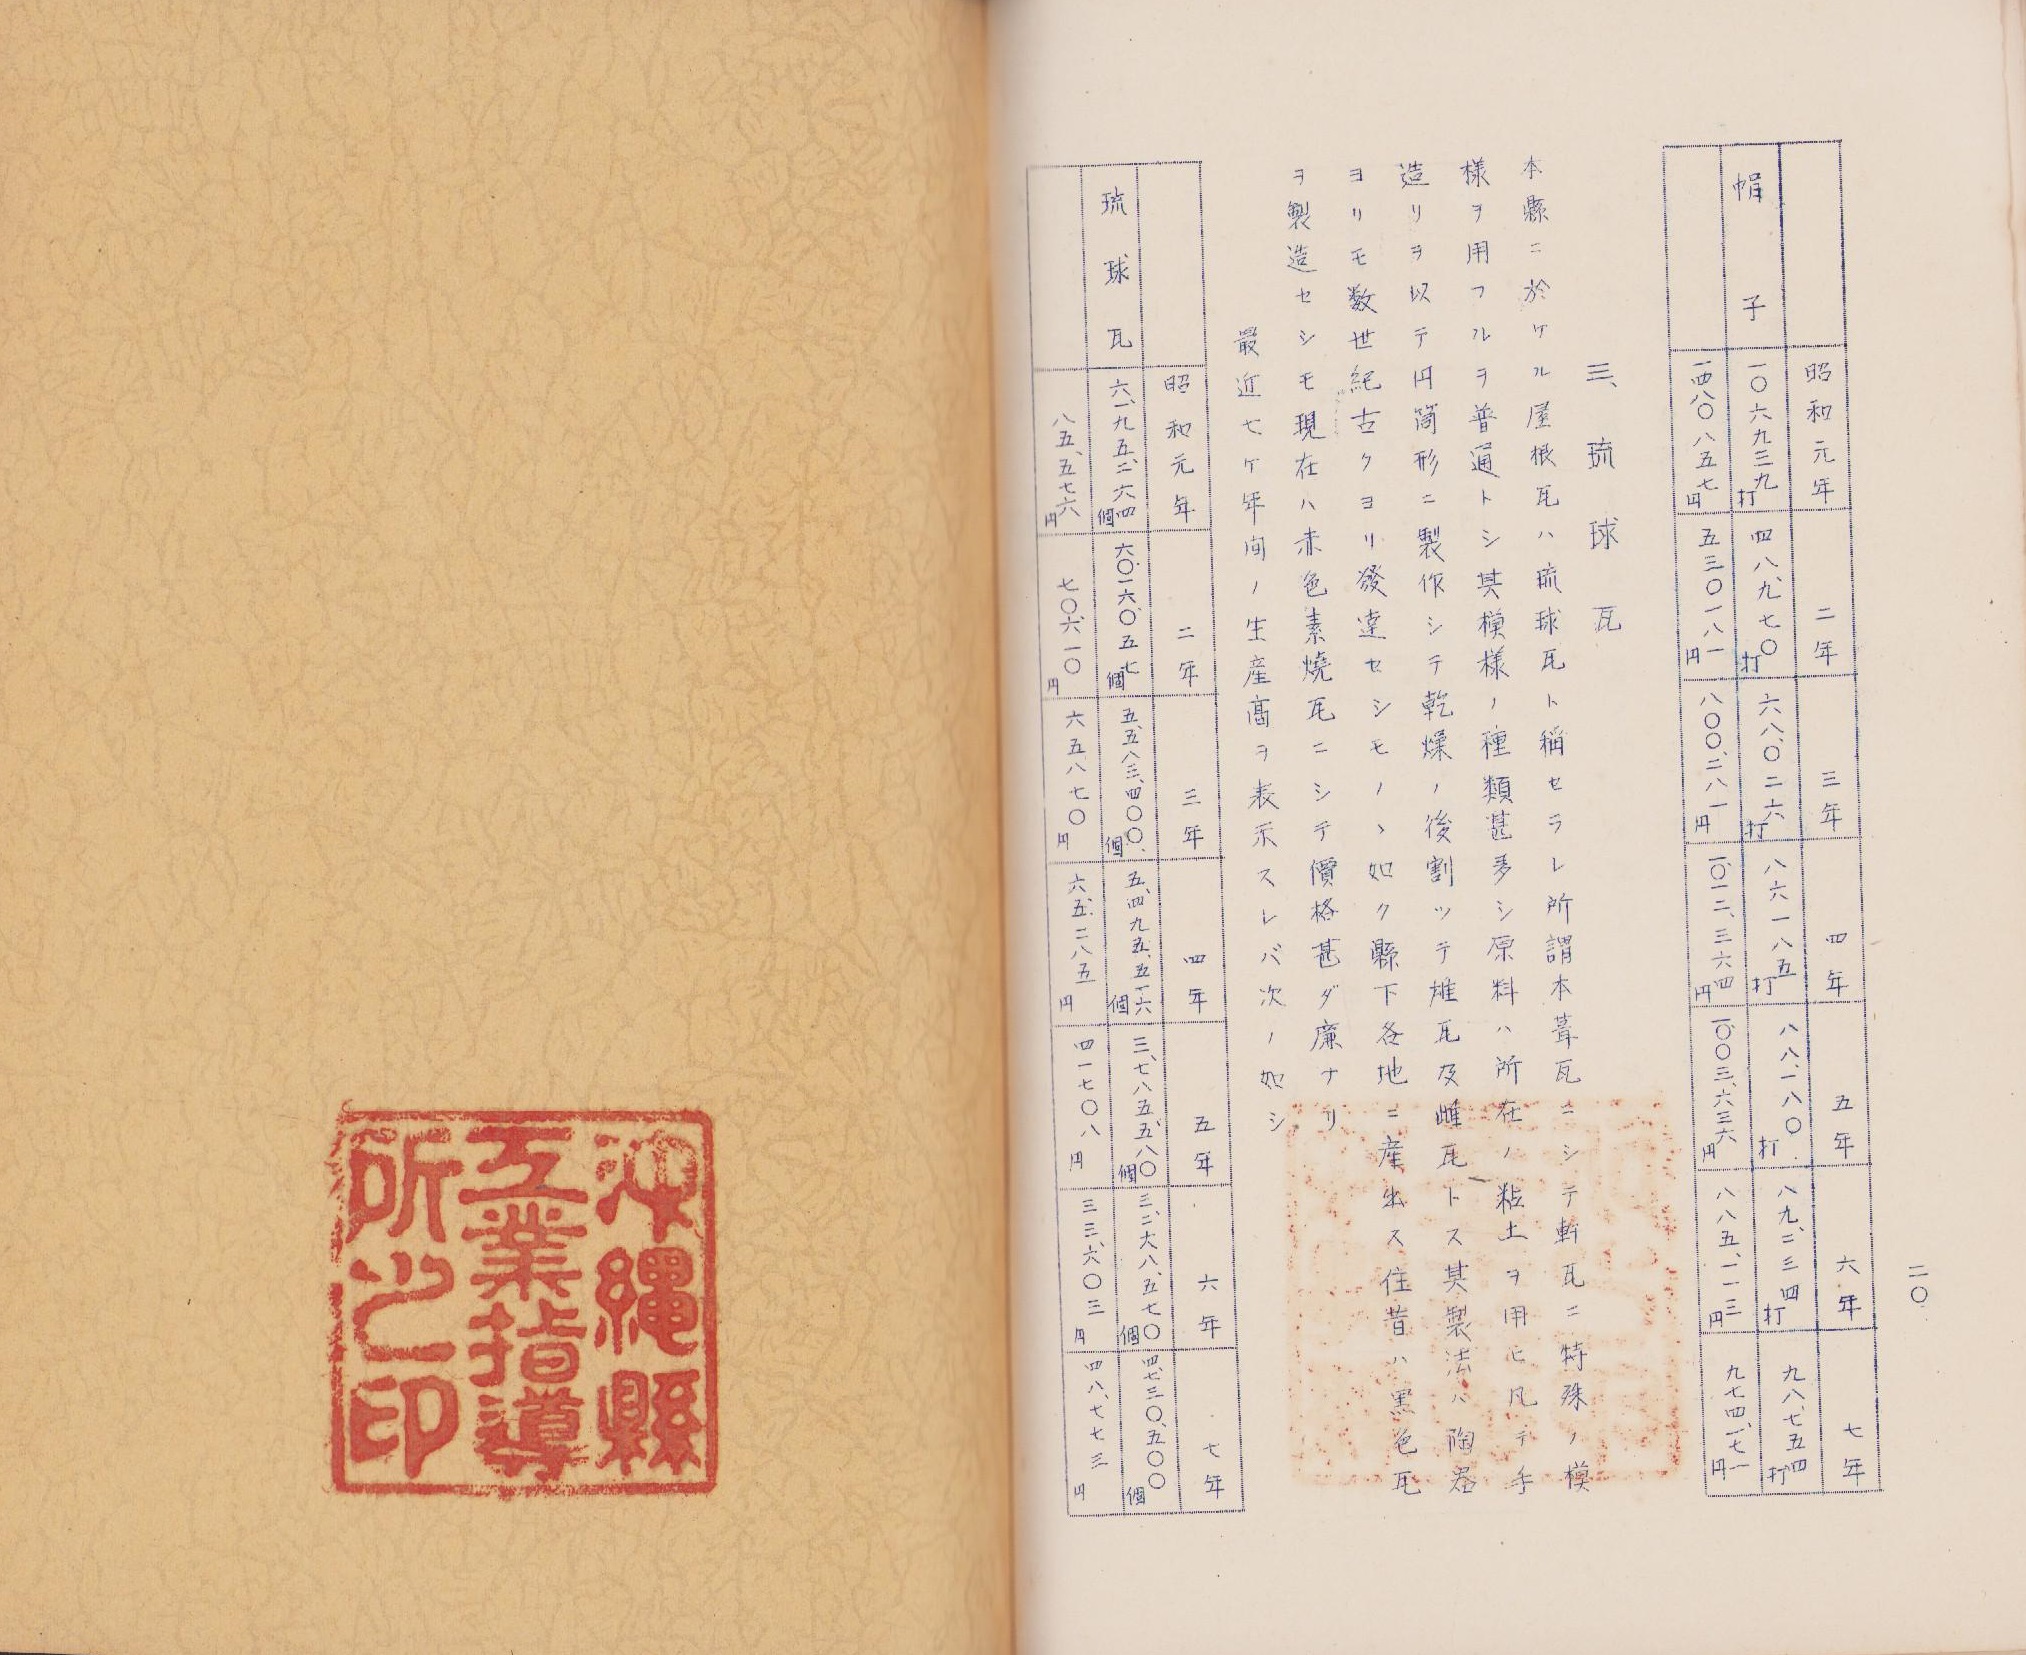 二〇
昭和元年 二年 三年 四年 五年 六年 七年
帽子 一〇六九三九打 四八、九七〇打 六八、〇二六打 八六一八五打 八八、一八〇打 八九、二三四打 九八、七五四打
一四八〇八五七円 五三〇一八一円 八〇〇、二八一円 一〇一二、三六四円 一〇〇三、六三六円 八八五、一一三円 九七四、一七一円
三、琉球瓦
本縣ニ於ケル屋根瓦ハ琉球瓦ト稱セラレ所謂本葺瓦ニシテ軒瓦ニ特殊ノ模
様ヲ用フルヲ普通トシ其模様ノ種類甚多シ原料ハ所在ノ粘土ヲ用ヒ凡テ手
造リヲ以テ円筒形ニ製作シテ乾燥ノ後割ツテ雄瓦及雌瓦トス其製法ハ陶器
ヨリモ数世紀古クヨリ發達セシモノヽ如ク縣下各地ニ産出ス往昔ハ黒色瓦
ヲ製造セシモ現在ハ赤色素燒瓦ニシテ價格甚ダ廉ナリ
最近七ケ年间ノ生産高ヲ表示スレバ次ノ如シ
昭和元年 二年 三年 四年 五年 六年 七年
琉球瓦 六、一九五、二六四個 六、〇一六、〇五七個 五、五八三、四〇〇個 五、四九五、五一六個 三、七八五、五八〇個 三、二六八、五七〇個 四、七三〇、五〇〇個
八五、五七六円 七〇、六一〇円 六五八七〇円 六五、二八五円 四一七〇八円 三三、六〇三円 四八、七七三円
沖縄縣
工業指導
所之印